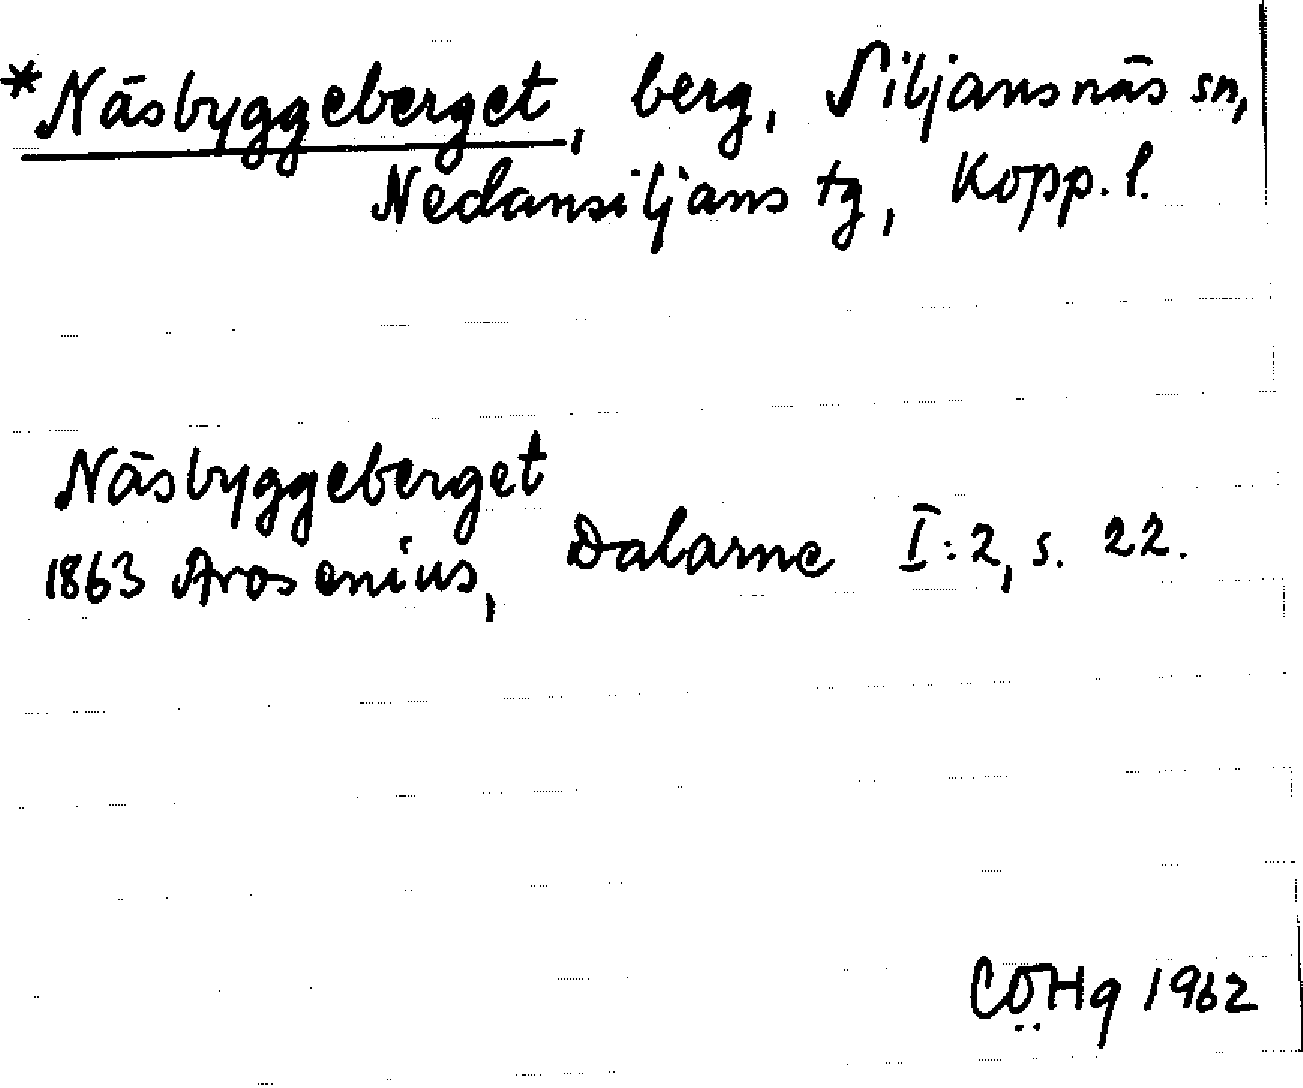 *Näsbyggeberget, berg, Siljansnäs sn,
Nedansiljans tg, Kopp. l.
Näsbyggeberget
1863 Arosenius, Dalarne I:2, s. 22.
CÖHg 1962